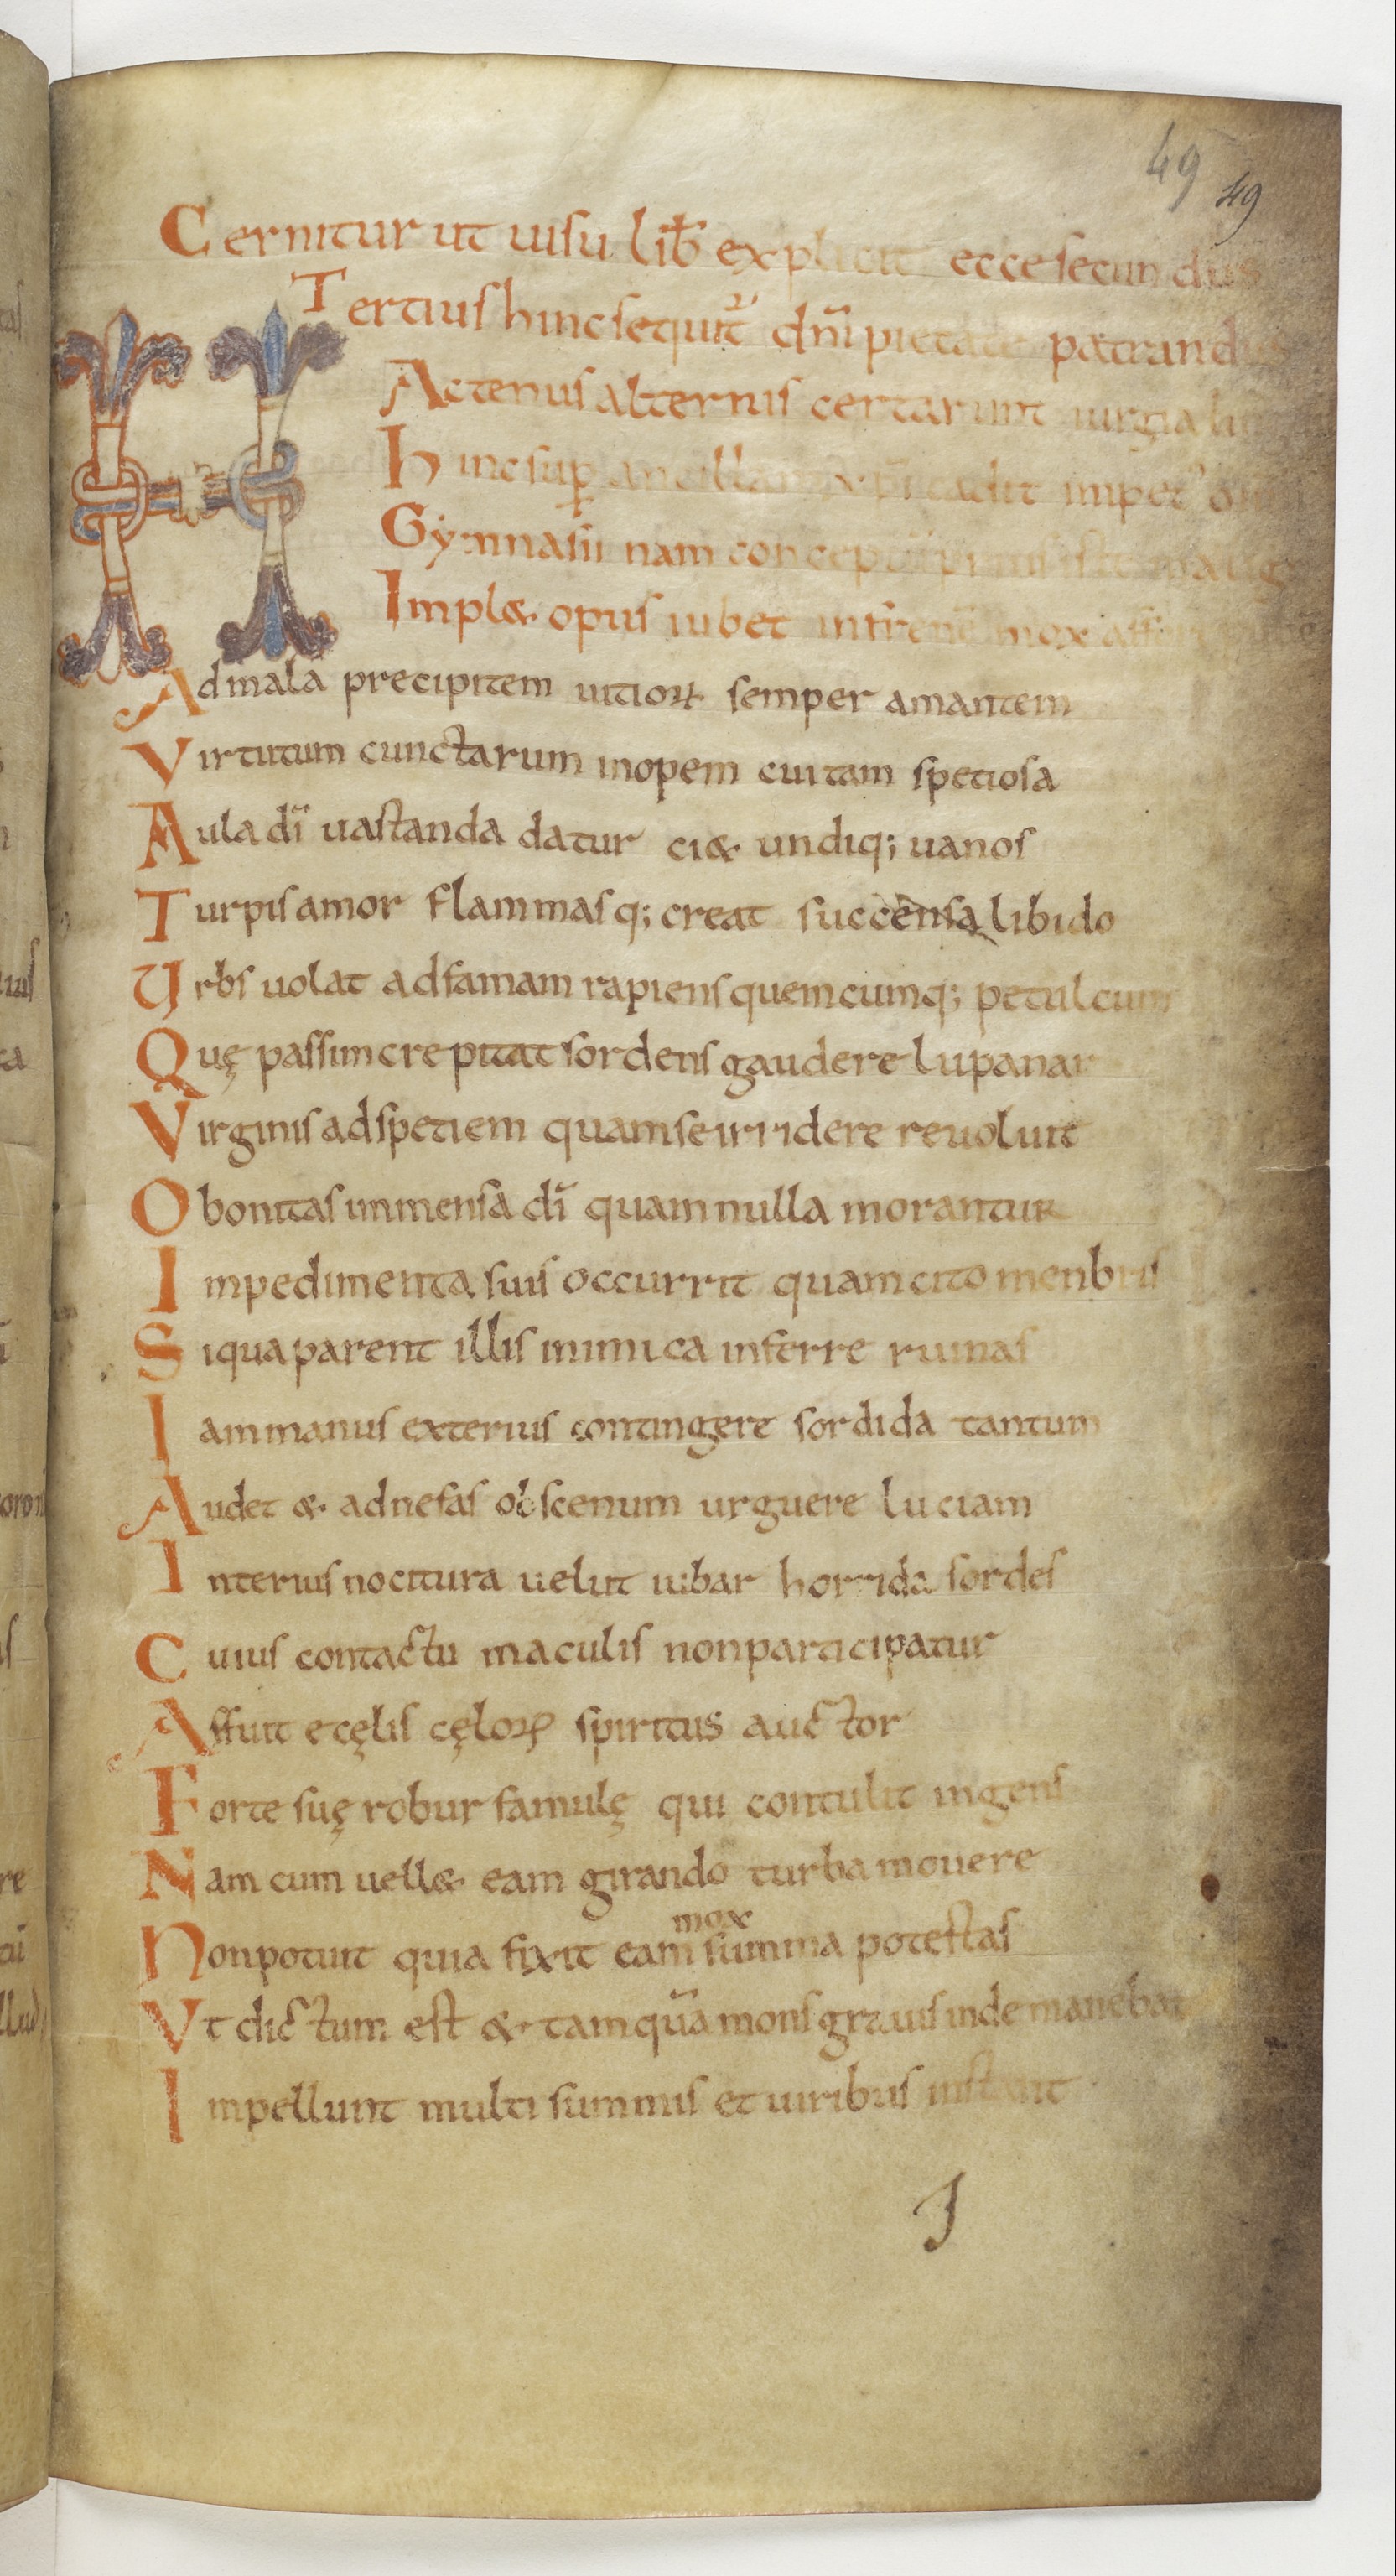 49 49
Cernitur ut uisu lib̄ explicit ecce secundus
Tertius hinc sequit᷑ dn̄i pietate patrand
Actenus alternis certarunt iurgia
Hinc sup̄ ancillam
Gymnasii nam
Implæ opus iubet mox
Ad mala precipitem uitioꝝ semper amantem
Virtutum cunctarum inopem cui tam spetiosa
Aula dī uastanda datur ci& undiq; uanos
Turpis amor flammasq; creat succensa libido
Urbs uolat ad famam rapiens quemcumq; petulcum
Quę passim crepitat sordens gaudere lupanar
Virginis ad spetiem quam se irridere reuoluit
O bonitas immensa dī quam nulla morantur
Impedimenta suis occurrit quam cito menbris
Siqua parent illis inimica inferre ruinas
Iam manus exterius contingere sordida tantum
Audet & ad nefas obscenum urguere luciam
Interius nocitura uelut iubar horrida sordes
Cuius contactu maculis non participatur
Affuit e cęlis cęloꝝ spiritus auctor
Forte suę robur famulę qui contulit ingens
Nam cum uell& eam girando turba mouere
mox
Non potuit quia fixit eam summa potestas
Vt dictum est & tamquā mons grauis inde manebat
Impellunt multi summis et uiribus instant
I